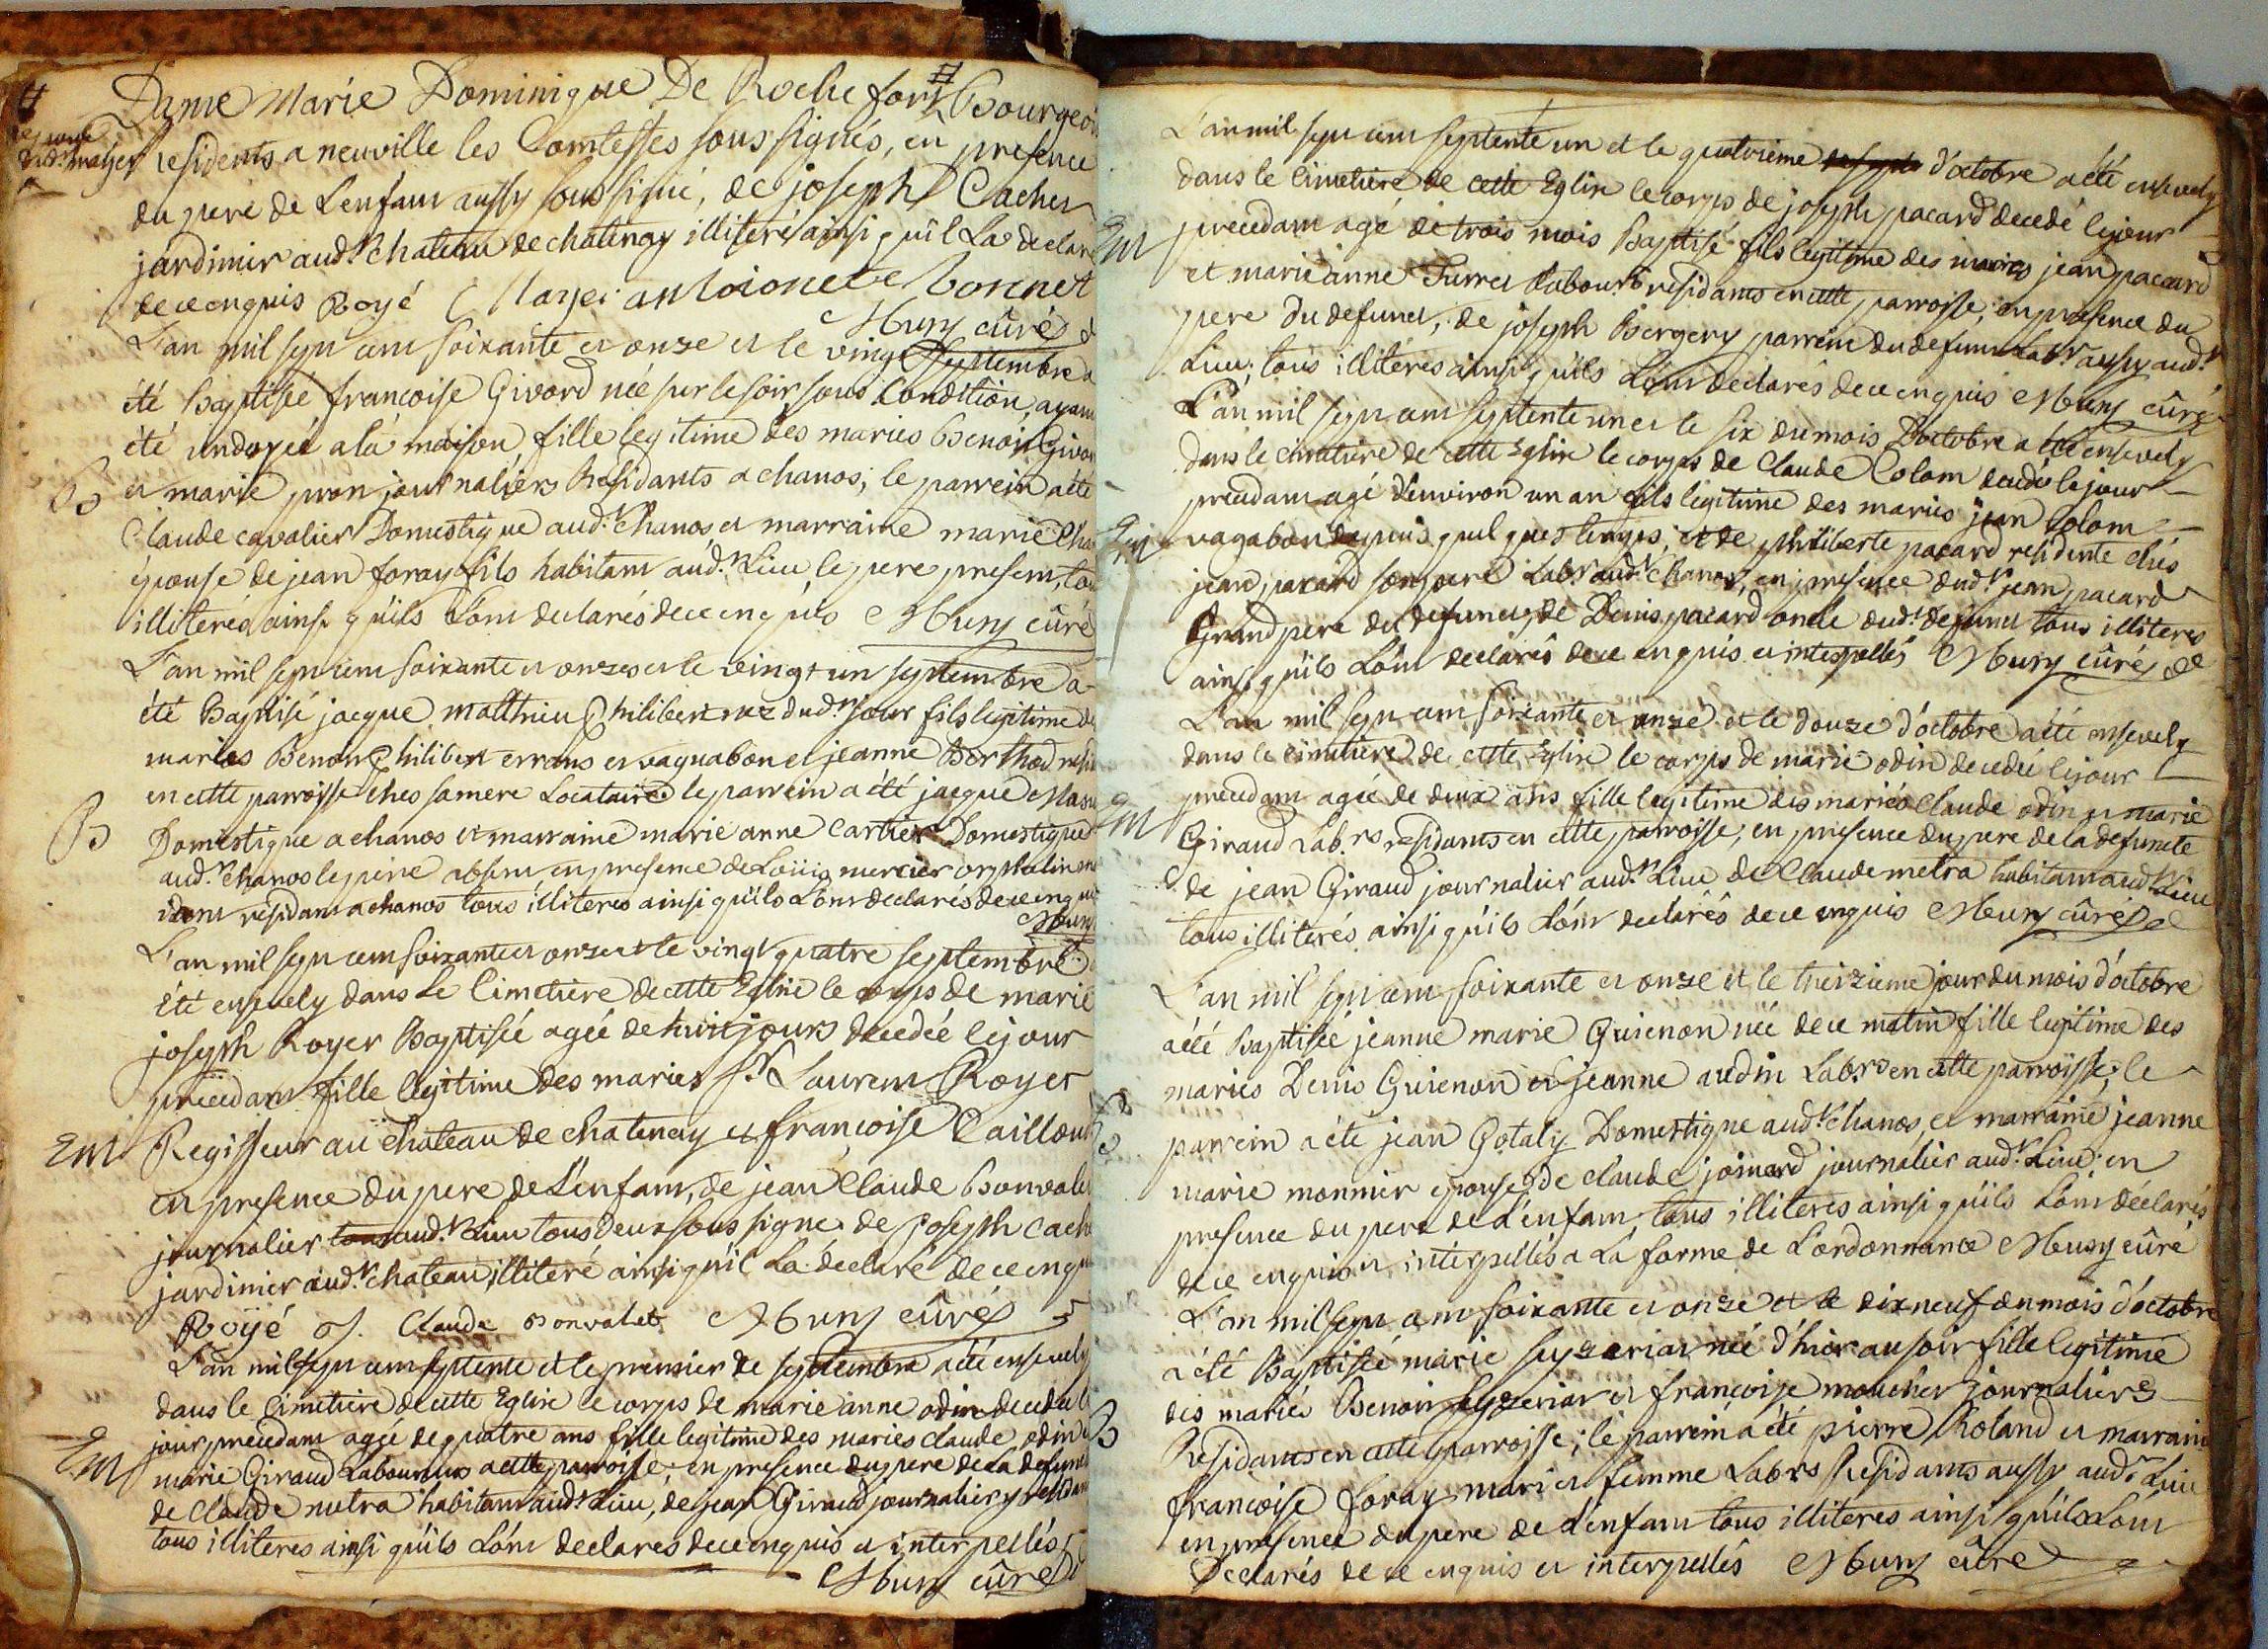 Dame Marie Dominique De Rochefort # Bourgeois
residents a neuville les Comtesses sous signés, en presence
du pere de L'enfant aussy sous signé, de joseph Cacher
jardinier aud.t chateau de chatenay illiteré ainsi qu'il La declaré
de ce enquis Royé antoionete bonnet
Muny cûré
L'an mil sept cent soixante et onze et le vingt Septembre a
été Baptisée francoise Givord née sur le soir sous Condition, ayant
été undoyée a la maison fille legitime des maries Benoit Givord
B et marie journaliers Residants a chanos; le parrein a été
Claude cavalier Domestique aud.t chanos et marraine marie
épouse de jean foray fils habitant aud.t Lieu le pere present, tous
illiterés ainsi qu'ils L'ont declarés de ce enquis Muny cûré
L'an mil sept cent soixante et onze et le vingt un septembre a
été Baptisé jacque matthieu philibert nez dud.t jour fils legitime des
maries Benoit philibert errans et vagnabon et jeanne Berthod
en cette parroisse ches sa mere Locataire le parrein a été jacque
B Domestique a chanos et marraine marie anne cartier Domestique
aud.t chanos le pere absent en presence de Loüis mercier orphelin
residant a chanos tous illiterés ainsi qu'ils L'ont declarés de ce enquis
Muny
L'an mil sept cent soixante et onze et le vingt quatre septembre a
été ensevely dans Le Cimetiere de cette Eglise le corps de marie
joseph Royer Baptisée agée de huit jours decedée le jour
precedant fille legitime des maries S.r Laurent Royer
Em Regisseur au chateau de chatenay et francoise Cailloux
en presence du pere de L'enfant, de jean Claude Bonvalet
journalier aud.t Lieu tous deux sous signes de joseph Cacher
jardinier aud.t chateau illiteré ainsi qu'il La declaré de ce enquis
Royé J. Claude Bonvalet Muny cûré
L'an mil sept cent septente et le premier de septembre a été ensevely
dans le Cimetiere de cette Eglise le corps de marie anne odin decedée le
jour precedant agée de quatre ans fille legitime des maries claude odin et
Em marie Giraud Laboureurs a cette parroisse; en presence du pere de La defunte
de Claude metra habitant aud.t Lieu, de jean Giraud journalier y residant
tous illiteres ainsi qu'ils L'ont declares de ce enquis et interpellés
Muny cûré
L'an mil sept cent septente un et le quatrieme d'octobre a été ensevely
dans le Cimetiere de cette Eglise le corps de joseph pacard decedé le jour
Em precedant agé de trois mois Baptisé fils legitime des maries jean pacard
et marie anne Labour.s residants en cette parroisse, en presence du
pere du defunct, de joseph Bergery parrein du defunt Lab.r aussy aud.t
Lieu, tous illiteres ainsi qu'ils L'ont declarés de ce enquis Muny cûré
L'an mil sept cent septente un et le six du mois D'octobre a été ensevely
dans le cimetiere de cette Eglise le corps de Claude Colom decedé le jour
precedant agé d'environ un an fils legitime des maries jean Colom
Em vagabon depuis quelques temps, et de philiberte pacard residente ches
jean pacard son pere Lab.r aud.t Chanos, en presence dud.t jean pacard
Grand pere du defunct, de Denis pacard oncle dud.t defunct tous illiteres
ainsi qu'ils L'ont declarés de ce enquis et interpellés Muny cûré
L'an mil sept cent soixante et onze et le douze d'octobre a été ensevely
dans le cimetiere de cette Eglise le corps de marie odin decedée le jour
Em precedant agée de deux ans fille legitime des mariés Claude odin et marie
Giraud Lab.rs residants en cette parroisse; en presence du pere de la defuncte
de jean Giraud journalier aud.t Lieu de Claude metra habitant aud.t Lieu
tous illiterés ainsi qu'ils L'ont declarés de ce enquis Muny cûré
L'an mil sept cent soixante et onze et le treizieme jour du mois d'octobre
a été Baptisée jeanne marie Guienon née de ce matin fille legitime des
maries Denis Guienon et jeanne audin Lab.rs en cette parroisse; le
B parrein a été jean Gotaly Domestique aud.t chanos, et marraine jeanne
marie monnier epouse de claude joinard journalier aud.t Lieu; en
presence du pere de L'enfant, tous illiteres ainsi qu'ils L'ont déclarés
de ce enquis et interpellés a La forme de L'ordonnance Muny cûré
L'an mil sept cent soixante et onze et le dix neuf du mois d'octobre
a été Baptisée marie seyzeriat née d'hier au soir fille legitime
des mariés Benoit seyzeriat et francoise moucher journaliers
B Residants en cette parroisse; le parrein a été pierre Roland et marraine
francoise foray mari et femme Lab.rs Residants aussy aud.t Lieu
en presence du pere de L'enfant tous illiteres ainsi qu'ils L'ont
Declarés de ce enquis et interpellés Muny cûré